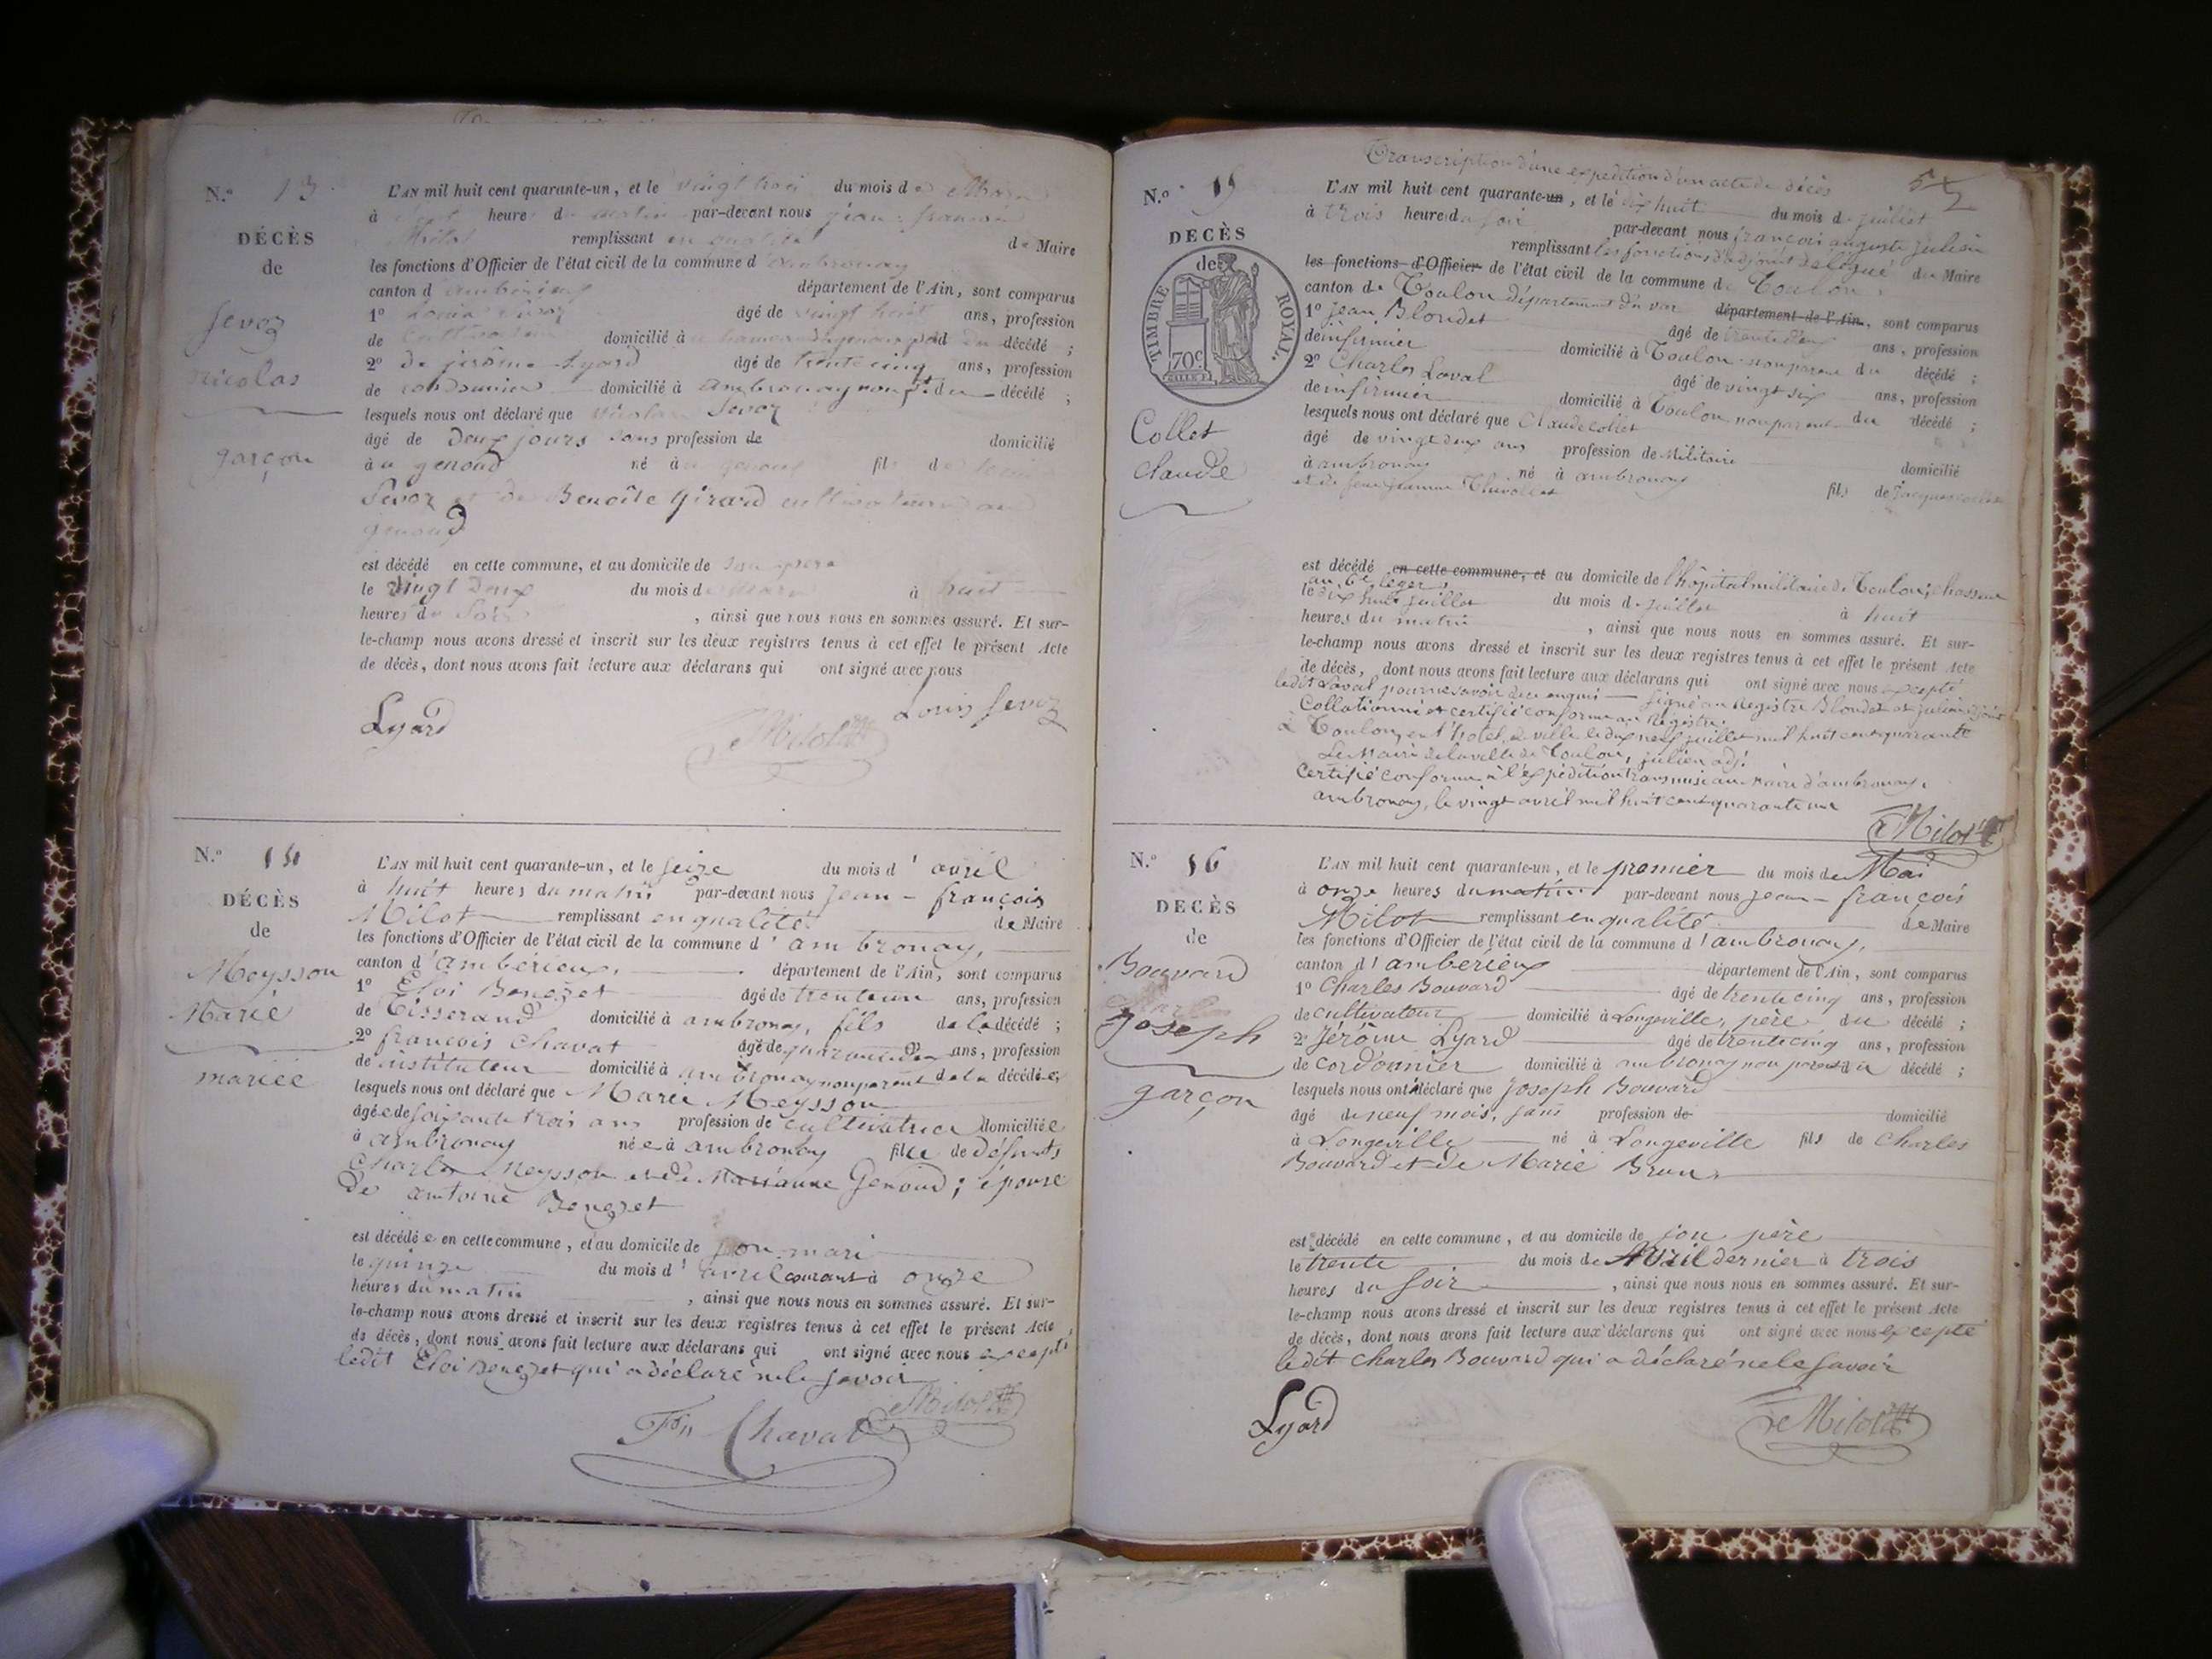 N.º 13
DÉCÈS
de
Sevoz
nicolas
garçon
L'AN mil huit cent quarante-un, et le vingt trois du mois de Mars
à heures du matin par-devant nous jean-françois
Milot remplissant en qualité de Maire
les fonctions d'Officier de l'état civil de la commune d'ambronay
canton d'ambérieux département de l'Ain, sont comparus
1º Louis Sevoz âgé de vingt huit ans, profession
de cultivateur domicilié à du décédé ;
2º de jérôme Lyard âgé de trente cinq ans, profession
de cordonnier domicilié à ambronay non pt du décédé ;
lesquels nous ont déclaré que nicolas Sevoz
âgé de deux jours sans profession de domicilié
à u genoud né à u genoud fils de Louis
Sevoz et de Benoîte Girard cultivateurs au
genoud
est décédé en cette commune, et au domicile de son père
le vingt deux du mois de mars à huit
heures du soir , ainsi que nous nous en sommes assuré. Et sur-
le-champ nous avons dressé et inscrit sur les deux registres tenus à cet effet le présent Acte
de décès, dont nous avons fait lecture aux déclarans qui ont signé avec nous
Lyard Milot Louis Sevoz
N.º 14
DÉCÈS
de
Meysson
Marie
mariée
L'AN mil huit cent quarante-un, et le seize du mois d'avril
à huit heures du matin par-devant nous jean-françois
Milot remplissant en qualité de Maire
les fonctions d'Officier de l'état civil de la commune d'ambronay,
canton d'ambérieux, département de l'Ain, sont comparus
1º Eloi Benezet âgé de trente un ans, profession
de Tisserand domicilié à ambronay, fils de la décédé ;
2º françois Chavat âgé de ans, profession
de instituteur domicilié à ambronay non parent de la décédée,
lesquels nous ont déclaré que Marie Meysson
âgée de soixante trois ans profession de cultivatrice domiciliée
à ambronay née à ambronay fille de défunts
Charles Meysson et de Marianne Genoud ; épouse
de antoine Benezet
est décédée en cette commune, et au domicile de son mari
le quinze du mois d'avril courant à onze
heures du matin , ainsi que nous nous en sommes assuré. Et sur-
le-champ nous avons dressé et inscrit sur les deux registres tenus à cet effet le présent Acte
de décès, dont nous avons fait lecture aux déclarans qui ont signé avec nous excepté
ledit Eloi Benezet qui a déclaré ne le savoir
Fçs Chavat Milot
Transcription d'une expédition d'un acte de décès
N.º 15
DECÈS
de
TIMBRE ROYAL.
70c
Collet
Claude
L'AN mil huit cent quarante-un, et le dix huit du mois de juillet
à trois heures du soir par-devant nous françois auguste julien
remplissant les fonctions d'adjoint délégué du Maire
les fonctions d'Officier de l'état civil de la commune de Toulon
canton de Toulon département du var département de l'Ain, sont comparus
1º jean Blondet âgé de ans, profession
de infirmier domicilié à Toulon non parent du décédé ;
2º Charles Laval âgé de vingt six ans, profession
de infirmier domicilié à Toulon non parent du décédé ;
lesquels nous ont déclaré que Claude Collet
âgé de vingt deux ans profession de Militaire domicilié
à ambronay né à ambronay fils de jacques collet
et de jeanne Thivollet
est décédé en cette commune, et au domicile de l'hôpital militaire de Toulon ; chasseur
au 6e léger,
le dix huit juillet du mois de juillet à huit
heures du matin , ainsi que nous nous en sommes assuré. Et sur-
le-champ nous avons dressé et inscrit sur les deux registres tenus à cet effet le présent Acte
de décès, dont nous avons fait lecture aux déclarans qui ont signé avec nous excepté
ledit Laval pour ne savoir de ce enquis — signé au Registre Blondet et julien adjoint
Collationné et certifié conforme au Registre.
à Toulon, en l'hotel de ville le dix neuf juillet mil huit cent quarante
Le Maire de la ville de Toulon, julien adj.
Certifié conforme à l'expédition transmise au Maire d'ambronay.
ambronay, le vingt avril mil huit cent quarante un
Milot
N.º 16
DECÈS
de
Bouvard
Joseph
garçon
L'AN mil huit cent quarante-un, et le premier du mois de Mai
à onze heures du matin par-devant nous jean-françois
Milot remplissant en qualité de Maire
les fonctions d'Officier de l'état civil de la commune d'ambronay,
canton d'amberieux département de l'Ain, sont comparus
1º Charles Bouvard âgé de trente cinq ans, profession
de cultivateur domicilié à Longeville, père du décédé ;
2º Jérôme Lyard âgé de trente cinq ans, profession
de cordonnier domicilié à ambronay non parent du décédé ;
lesquels nous ont déclaré que Joseph Bouvard
âgé de neuf mois, sans profession de domicilié
à Longeville né à Longeville fils de Charles
Bouvard et de Marie Brun
est décédé en cette commune, et au domicile de son père
le trente du mois de Avril dernier à trois
heures du soir , ainsi que nous nous en sommes assuré. Et sur-
le-champ nous avons dressé et inscrit sur les deux registres tenus à cet effet le présent Acte
de décès, dont nous avons fait lecture aux déclarans qui ont signé avec nous excepté
ledit Charles Bouvard qui a déclaré ne le savoir
Lyard Milot